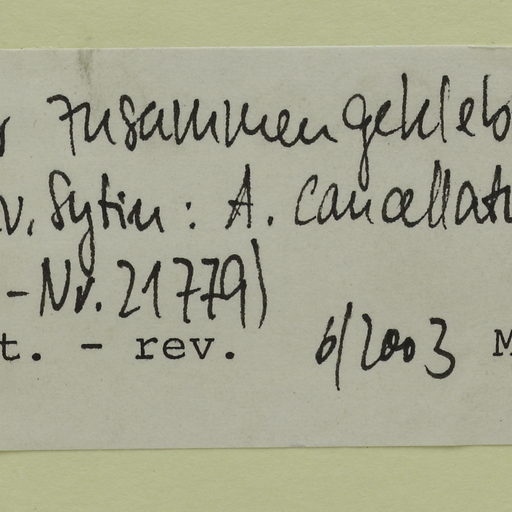 zusammengekleb
v. Sytin: A. cancellat
-Nr. 21779)
t. - rev. 6/2003 M